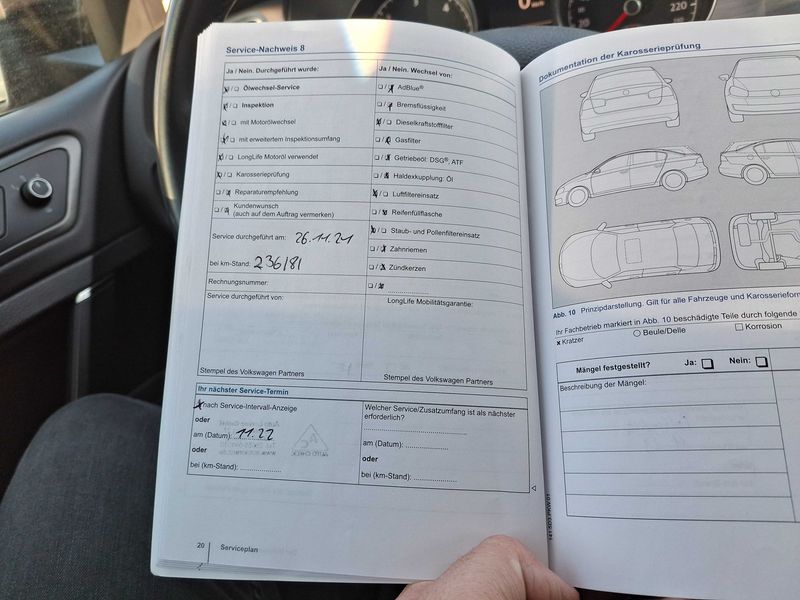 220
Service-Nachweis 8
Ja / Nein. Durchgeführt wurde:
Ölwechsel-Service
Inspektion
mit Motorölwechsel
mit erweitertem Inspektionsumfang
LongLife Motoröl verwendet
Karosserieprüfung
Reparaturempfehlung
Kundenwunsch
(auch auf dem Auftrag vermerken)
Service durchgeführt am: 26.11.21
bei km-Stand: 236181
Rechnungsnummer:
Service durchgeführt von:
Stempel des Volkswagen Partners
Ja / Nein. Wechsel von:
AdBlue®
Bremsflüssigkeit
Dieselkraftstofffilter
Gasfilter
Getriebeöl: DSG®, ATF
Haldexkupplung: Öl
Luftfiltereinsatz
Reifenfüllflasche
Staub- und Pollenfiltereinsatz
Zahnriemen
Zündkerzen
LongLife Mobilitätsgarantie:
Stempel des Volkswagen Partners
Ihr nächster Service-Termin
nach Service-Intervall-Anzeige
oder
am (Datum): 11.22
oder
bei (km-Stand):
Welcher Service/Zusatzumfang ist als nächster
erforderlich?
am (Datum):
oder
bei (km-Stand):
20 Serviceplan
Dokumentation der Karosserieprüfung
Abb. 10 Prinzipdarstellung. Gilt für alle Fahrzeuge und Karosseriefor
Ihr Fachbetrieb markiert in Abb. 10 beschädigte Teile durch folgende
Kratzer Beule/Delle Korrosion
Mängel festgestellt? Ja: Nein:
Beschreibung der Mängel: